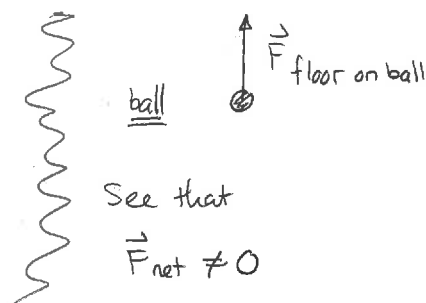 F⃗ floor on ball
ball
See that
F⃗ net ≠ 0